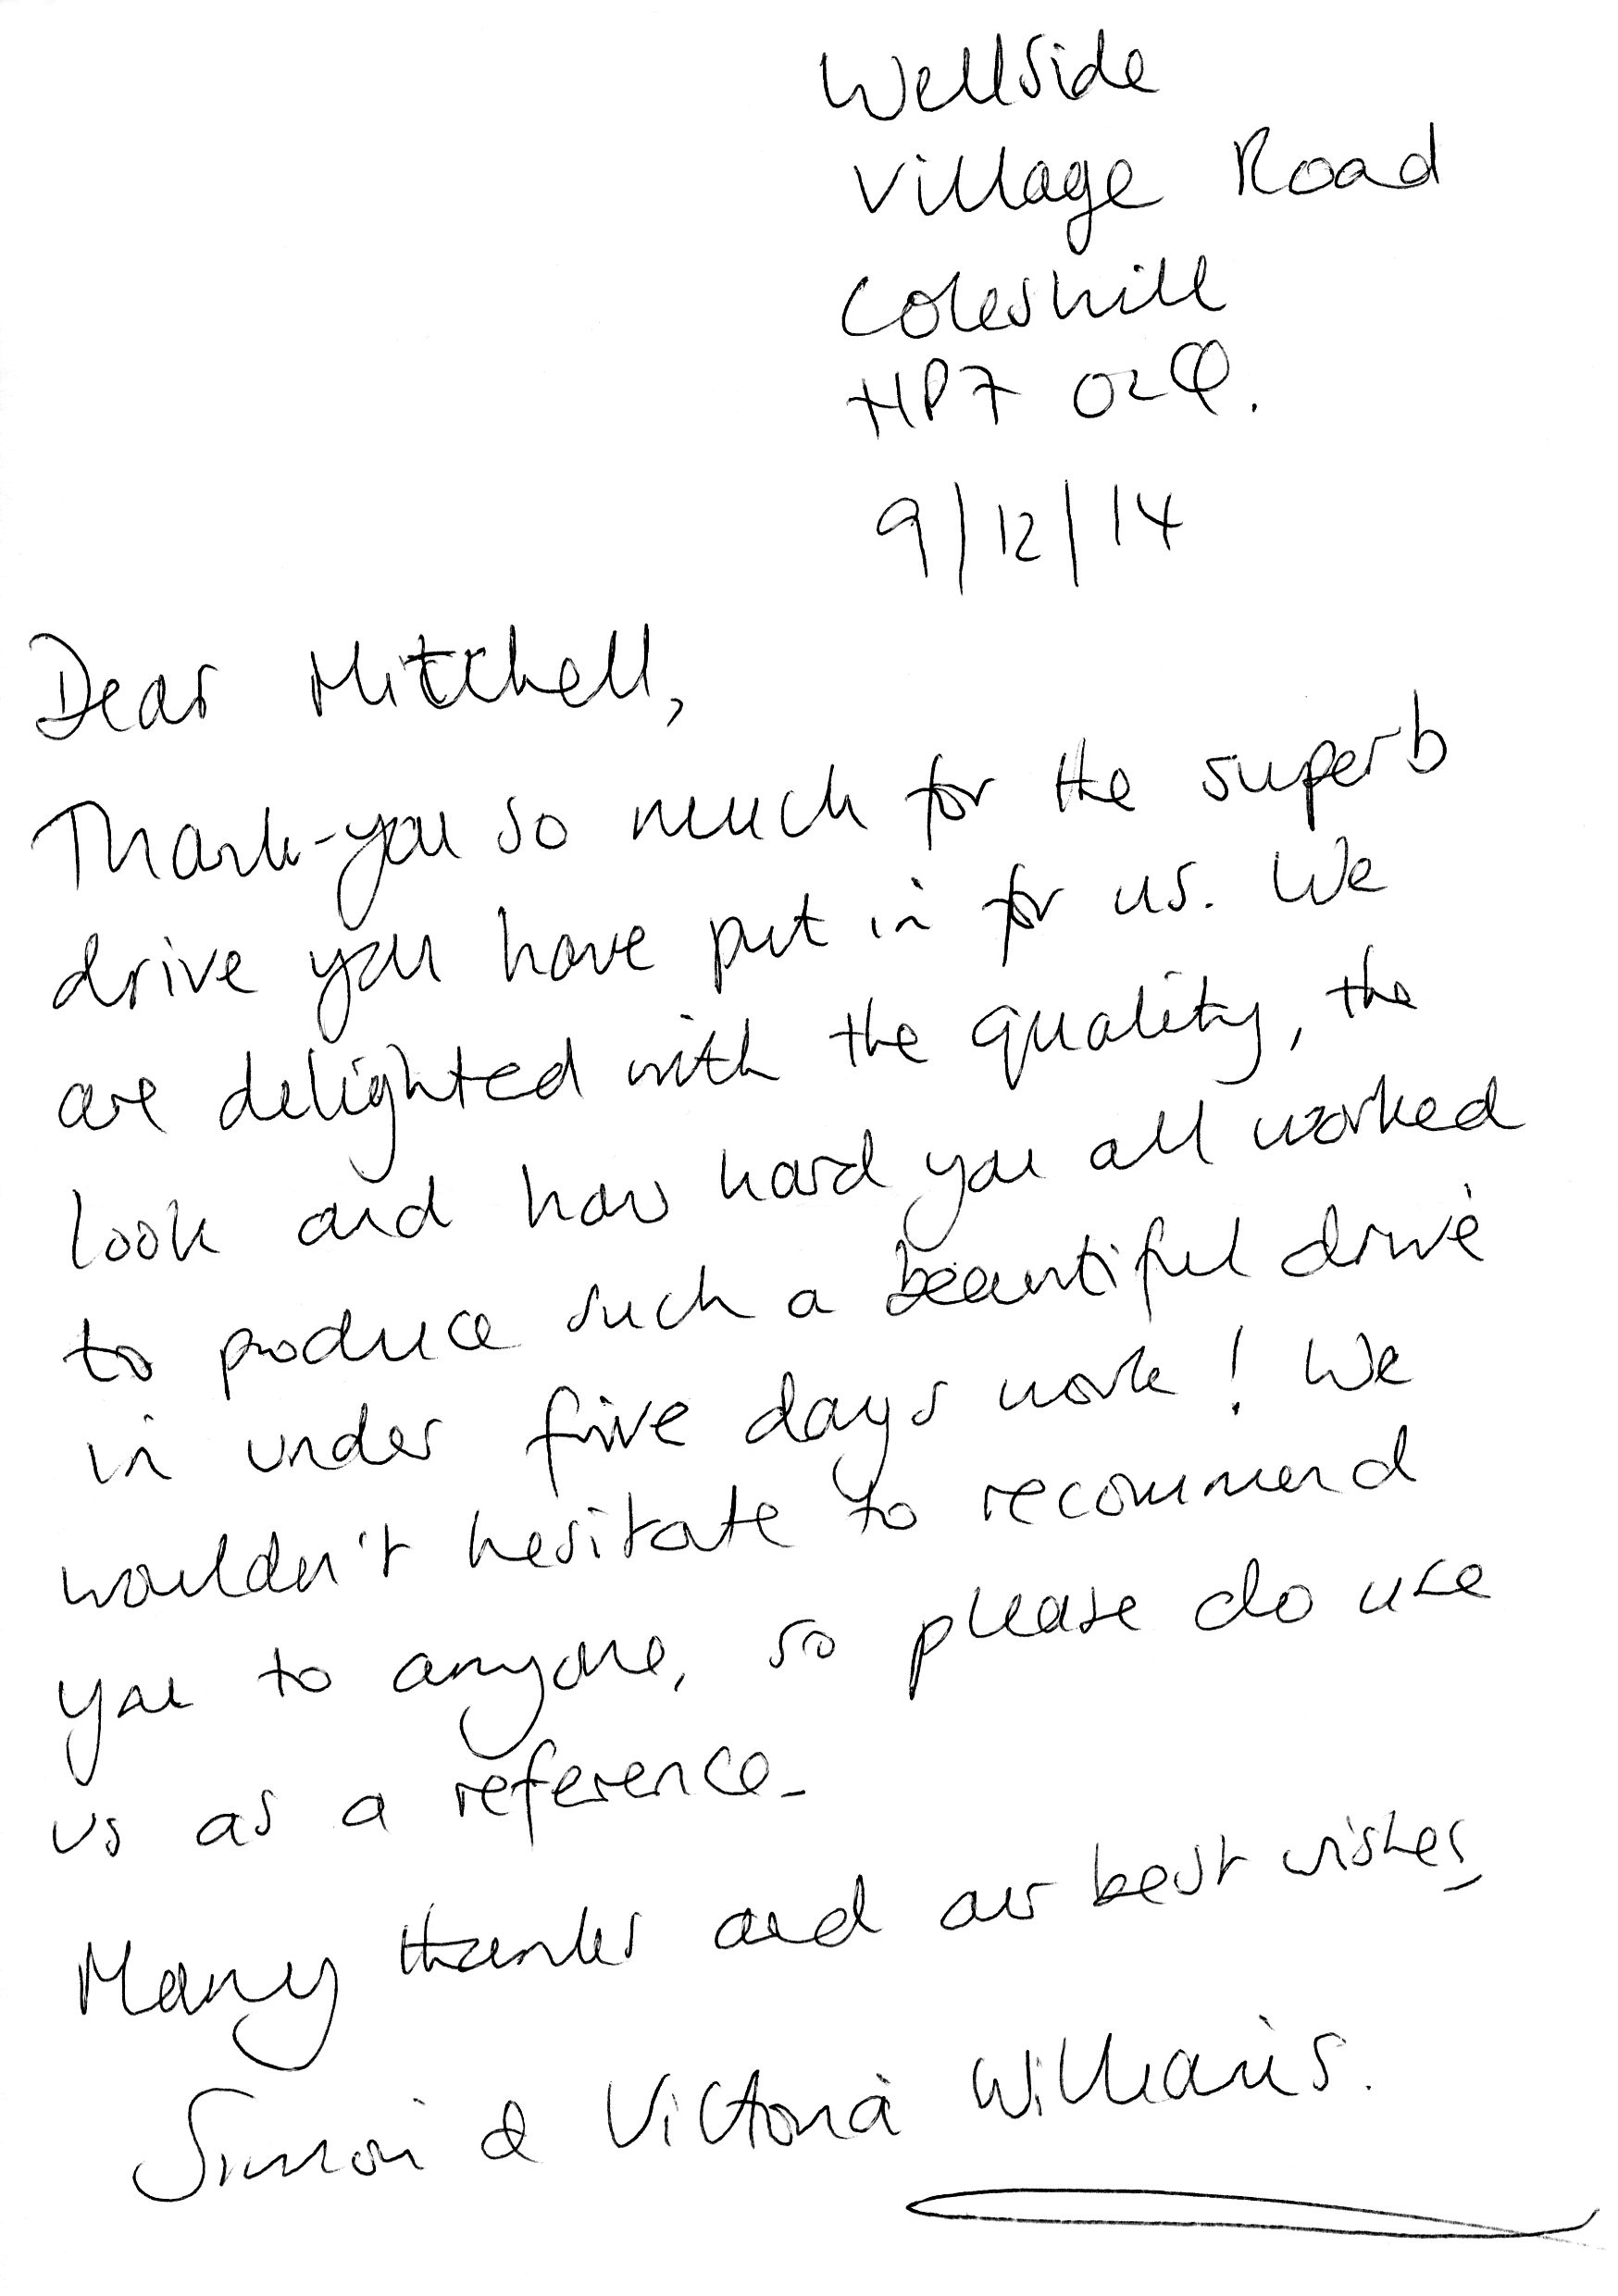 Wellside
Village Road
Coleshill
HP7 0LQ.
9/12/14
Dear Mitchell,
Thank-you so much for the superb
drive you have put in for us. We
are delighted with the quality, the
look and how hard you all worked
to produce such a beautiful drive
in under five days work! We
wouldn't hesitate to recommend
you to anyone, so please do use
us as a reference.
Many thanks and our best wishes,
Simon & Victoria Williams.